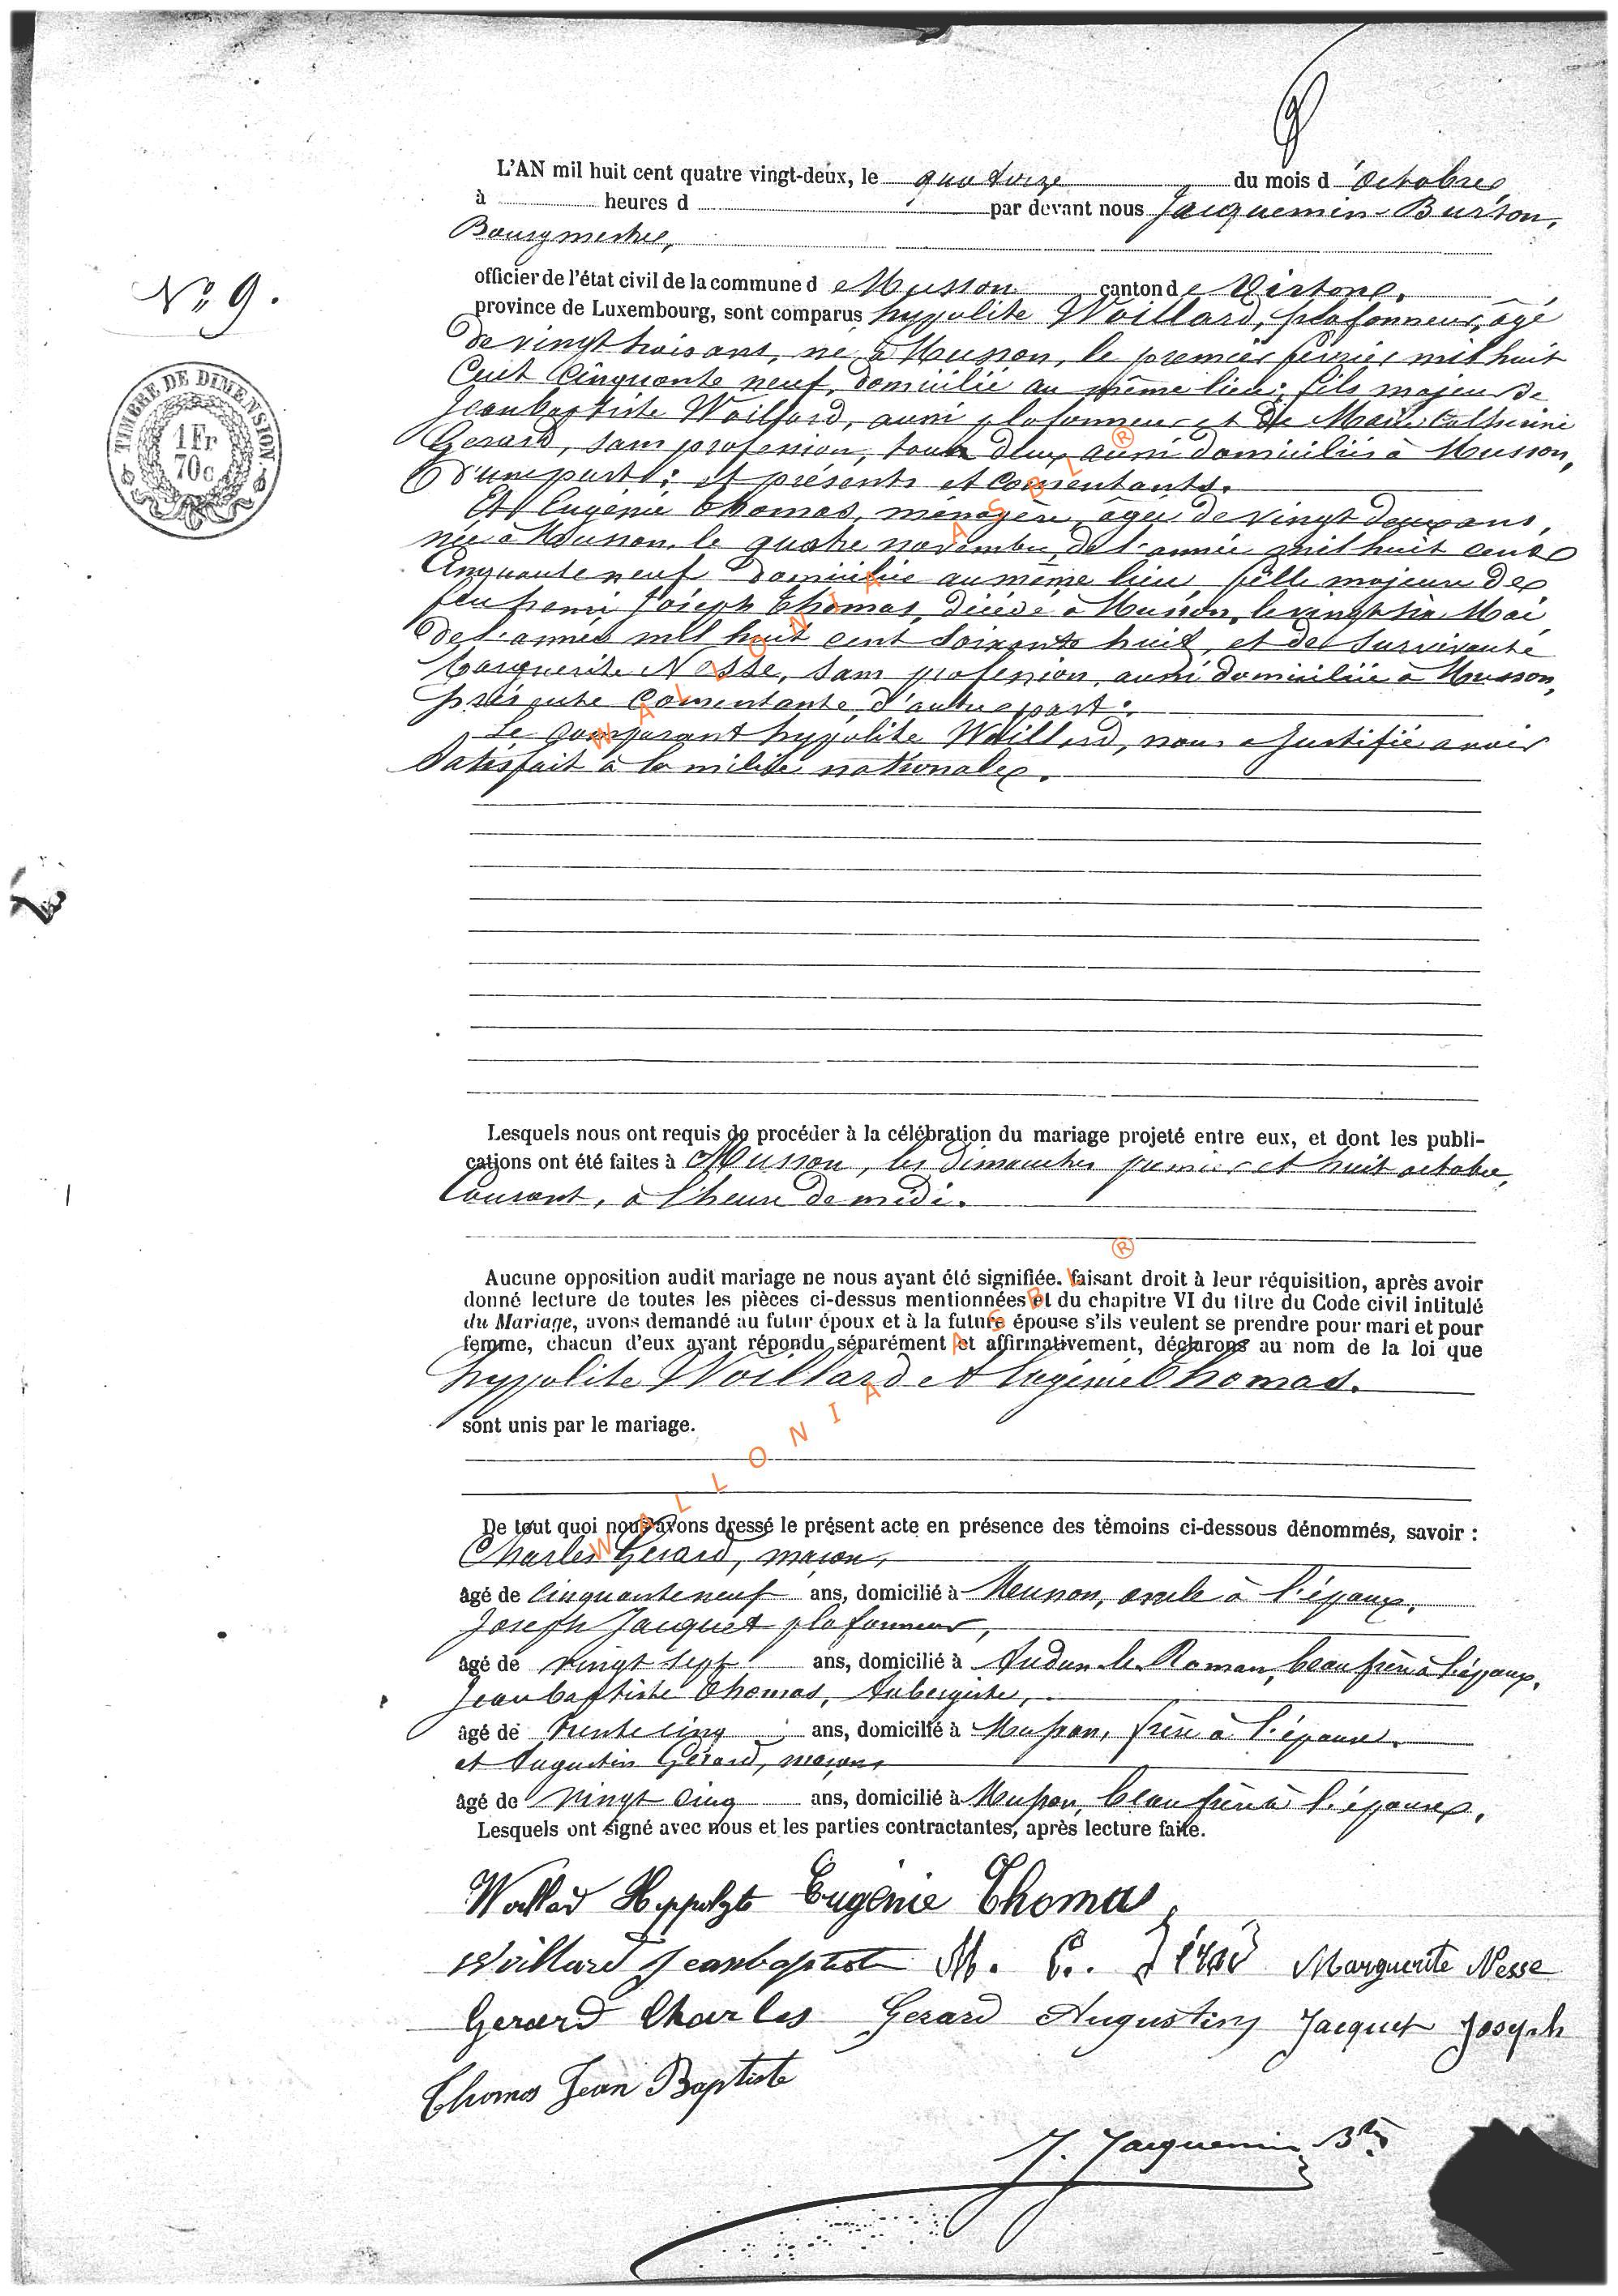 L'AN mil huit cent quatre vingt-deux, le quatorze du mois d'octobre,
à heures d par devant nous Jacquemin-Burson,
Bourgmestre,
officier de l'état civil de la commune de Musson canton de Virton,
province de Luxembourg, sont comparus hyppolite Woillard, plafonneur, âgé
de vingt trois ans, né à Musson, le premier février mil huit
Cent Cinquante neuf, domicilié au même lieu; fils majeur de
Jean baptiste Woillard, aussi plafonneur et de Marie Catherine
Gerard, sans profession, tous deux aussi domiciliés à Musson,
d'une part; et présents et consentants.
Et Eugénie Thomas, ménagère, âgée de vingt deux ans,
née à Musson, le quatre novembre, de l'année mil huit cent
Cinquante neuf domiciliée au même lieu, fille majeure de
feu henri Joseph Thomas, décédé à Musson, le vingt six Mai
de l'année mil huit cent soixante huit, et de survivante
Marguerite Nesse, sans profession, aussi domiciliée à Musson,
présente consentante, d'autre part;
Le comparant hyppolite Woillard, nous a justifié avoir
Satisfait à la milice nationale.
No 9.
TIMBRE DE DIMENSION
1 Fr
70c
Lesquels nous ont requis de procéder à la célébration du mariage projeté entre eux, et dont les publi-
cations ont été faites à Musson, les dimanches premier et huit octobre,
Courant, à l'heure de midi.
Aucune opposition audit mariage ne nous ayant été signifiée, faisant droit à leur réquisition, après avoir
donné lecture de toutes les pièces ci-dessus mentionnées et du chapitre VI du titre du Code civil intitulé
du Mariage, avons demandé au futur époux et à la future épouse s'ils veulent se prendre pour mari et pour
femme, chacun d'eux ayant répondu séparément et affirmativement, déclarons au nom de la loi que
hyppolite Woillard et Eugénie Thomas.
sont unis par le mariage.
De tout quoi nous avons dressé le présent acte en présence des témoins ci-dessous dénommés, savoir :
Charles Gerard, maçon,
âgé de cinquante neuf ans, domicilié à Musson, oncle à l'époux.
Joseph Jacquet plafonneur,
âgé de vingt sept ans, domicilié à Audun-le-Roman, beau frère à l'époux,
Jean baptiste Thomas, Aubergiste,
âgé de trente cinq ans, domicilié à Musson, frère à l'épouse.
et Augustin Gérard, maçon,
âgé de vingt cinq ans, domicilié à Musson, beau frère à l'épouse.
Lesquels ont signé avec nous et les parties contractantes, après lecture faite.
Woillard Hyppolyte Eugénie Thomas
Woillard Jean baptiste M. C. Gérard Marguerite Nesse
Gerard Charles Gerard Augustin Jacquet Joseph
Thomas Jean Baptiste
J. Jacquemin Bon
WALLONIA ASBL ®
WALLONIA ASBL ®